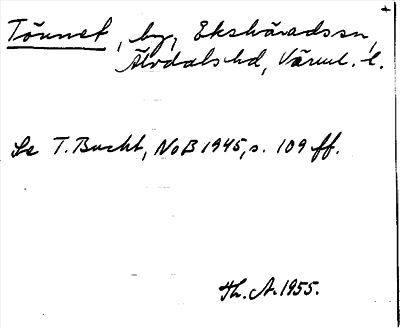 Tönnet, by, Ekshäradssn,
Älvdals hd, Värml. l.
Se T. Bucht, NoB 1945, s. 109 ff.
Th. A. 1955.